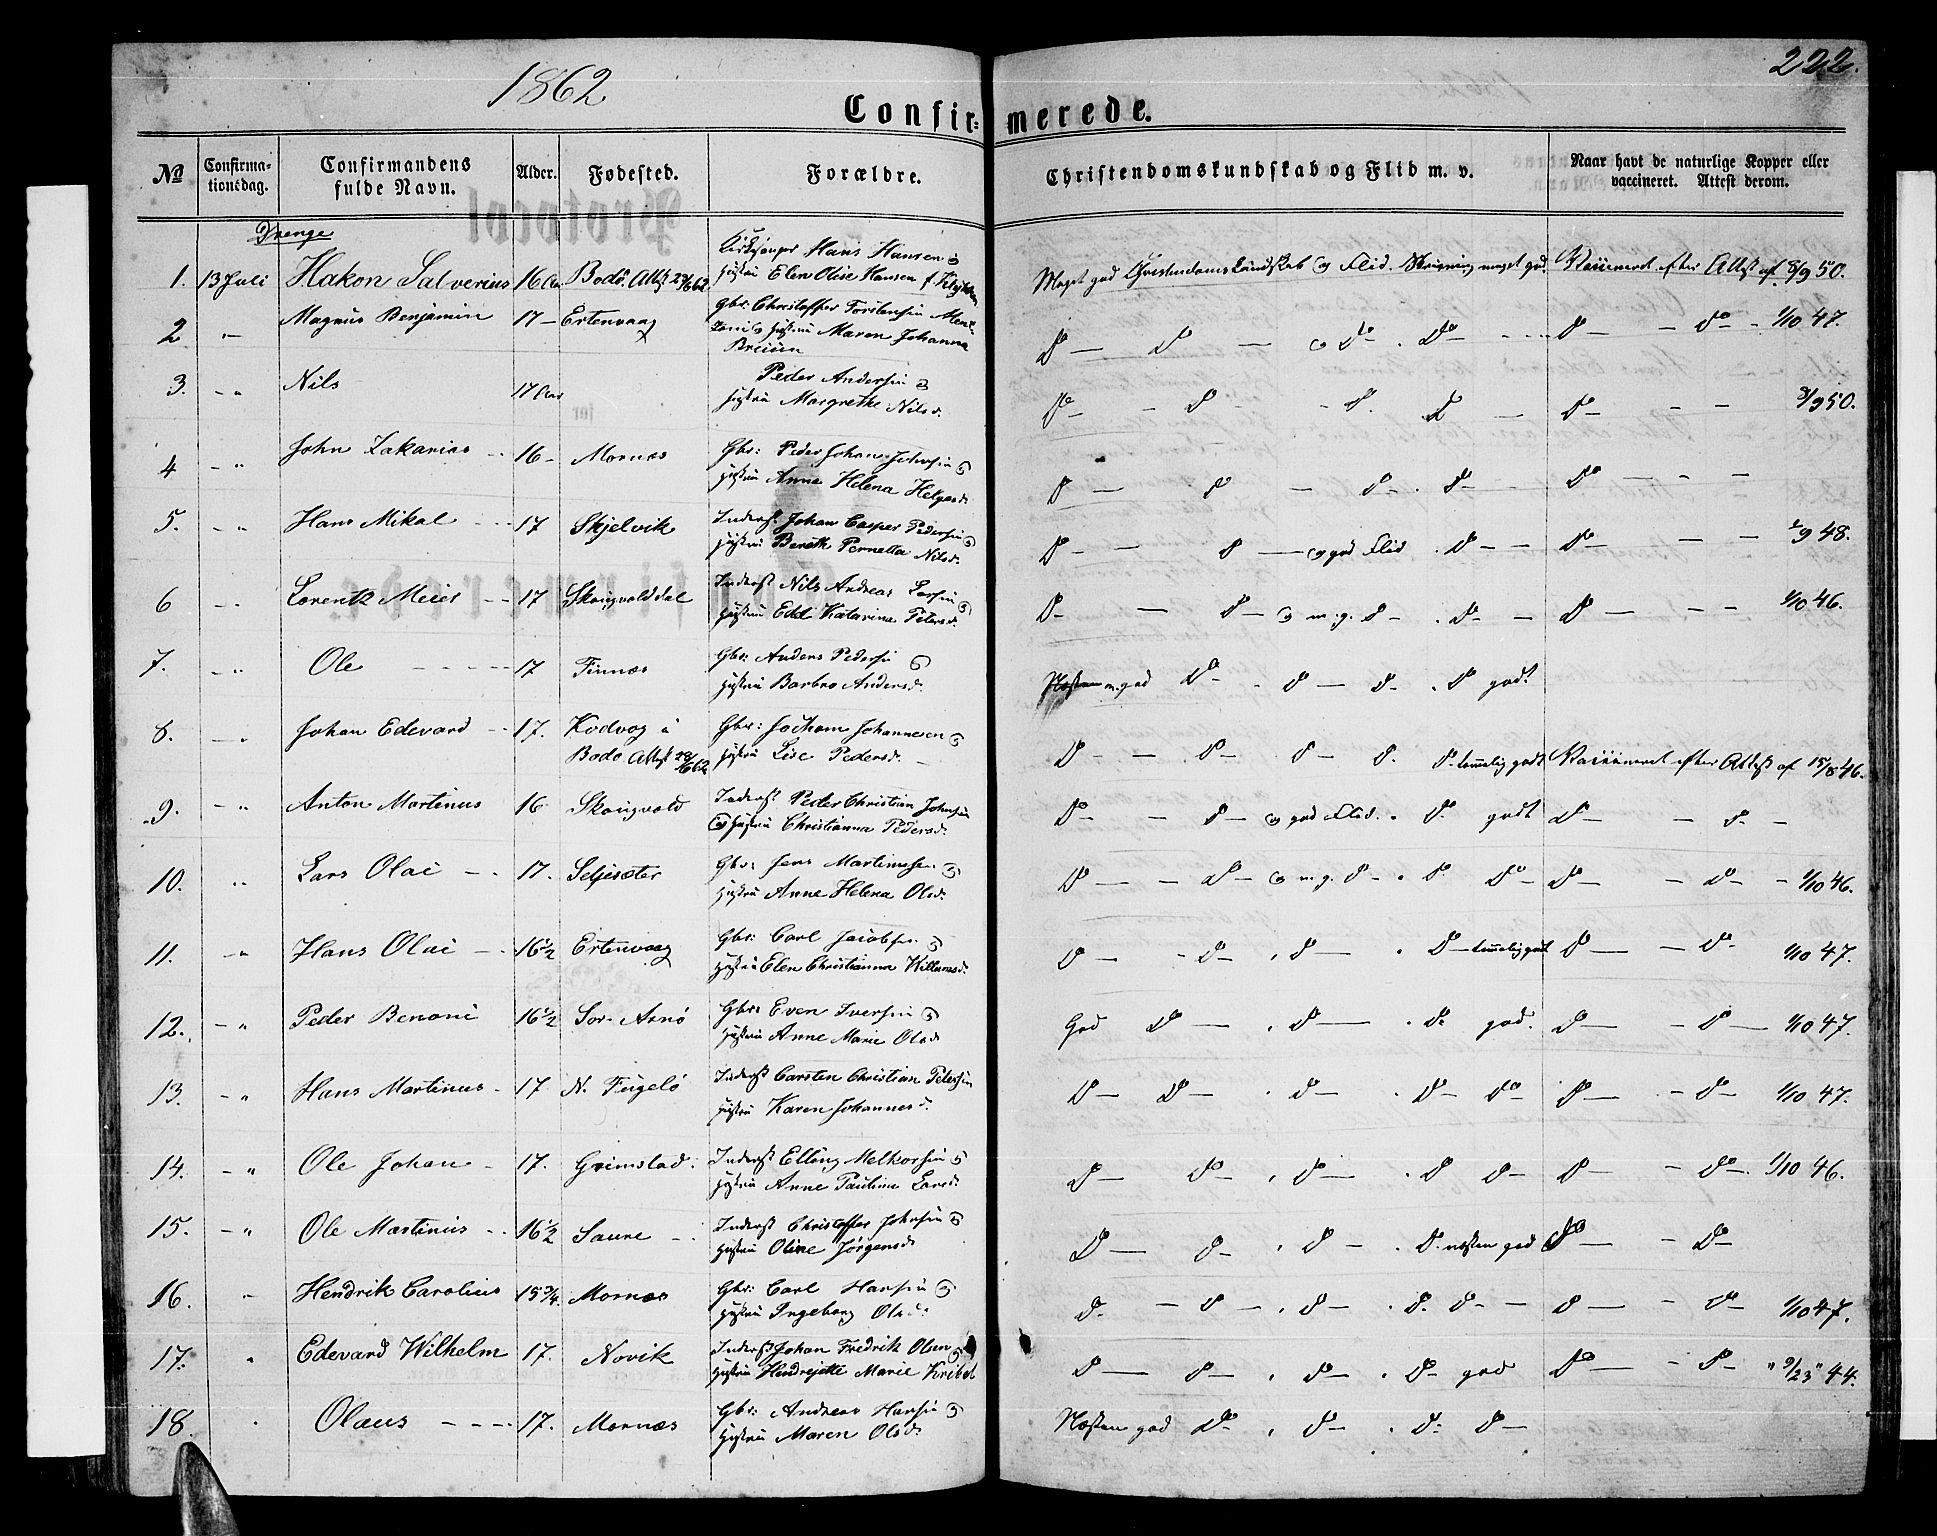 1862
222.
Confir- merede.
No
Confirma-
tionsdag.
Confirmandens
fulde Navn.
Alder.
Fødested.
Forældre.
Christendomskundskab og Flid m. v.
Naar havt de naturlige Kopper eller
vaccineret. Attest derom.
Drenge
1. 13 Juli Hakon Salverius 16 Aar Bodö. Attest 29/6 62. Kirkesanger Hans Hansen og
Hustru Elen Olise Hansen f.
Meget god Christendomskundskab og Flid. Skrivning meget god. Vaccineret efter Attest af 8/9 50.
2 - Magnus Benjamin 17 - Ertenvaag Gbr: Christoffer Torstensen
Hustru Maren Johanna
D° - D° - og D° - . D° - D° - - D° - 1/10 47.
3. - " Nils 17 Aar Peder Andersen og
Hustru Margrethe Nilsd.
D° - - D° - D°. D° D° - - - 3/9 50.
4 - " John Zakarias - - 16 - Mornæs Gbr: Peder Johan Johnsen og
Hustru Anne Helena Helgesd.
D° - D° - D° - . D° - D° - - -
5. - " Hans Mikal - - - 17 Skjelvik Inderst Johan Casper Pedersen og
Hustru Bereth Pernella Nilsd.
D° - - D° - og god Flid . D° - - D° - - - 2/9 48.
6 - - Lorentz Meier - - 17 Skougvolddal Inderst Nils Andreas Larsen og
Hustru Edel Katarina Petersd.
D° - - D° - og m. g. D° - . D° - - D° - - - 1/10 46.
7. - " Ole - - - - - 17 Finnæs Gbr: Anders Pedersen og
Hustru Barbro Andersd.
Næsten m. god D° - - D° - D° - . D° godt
8. - " Johan Edevard - - 17. Kodvog i
Bodö Attest 28/6 62 Gbr: Jochom Johannesen og
Hustru Lise Pedersd. -
D° - - D° - D° - D°. D° - temmelig godt Vaccineret efter Attest af 15/8 46.
9. - " Anton Martinus 16 Skougvold Inderst Peder Christian Johnsen
og Hustru Christianna Pedersd.
D° - - D° - og god Flid. . D°. godt D° - - D° -
10. " Lars Olai - - 17. Setjesæter Gbr: Jens Martinusen og
Hustru Anne Helena Olsd.
D° - - D° - og m. g. D° - . D° D° - D° - - D° - - 1/10 46.
11. - " Hans Olai - - 16 1/2 Ertenvaag Gbr: Carl Jacobsen og
Hustru Elen Christianna Willumsd.
D° - - D° - . D° - . D° - temmelig godt D° - - D° - 1/10 47.
12. - " Peder Benoni 16 1/2 Sör-Arnö Gbr: Even Iversen og
Hustru Anne Marie Olsd.
God D° - . D° - . D° god. D° - - D° - 1/10 47.
13. - " Hans Martinus - 17 N. Fugelö Inderst Carsten Christian Petersen
Hustru Karen Johannesd.
D° - D° - . D° - . D° - D° - D° - - D° - 1/10 47.
14. - " Ole Johan - 17. Grimstad. Inderst Elling Melkorsen og
Hustru Anne Paulina Larsd.
D° - D° - , D° - . D° D° - D° - - D° - . 1/10 46.
15. - " Ole Martinus - - 16 1/2 Saure - - Inderst Christoffer Johnsen og
Hustru Oline Jörgensd.
D° - D° - , D° - . D° næsten god D° - - D° -
16. " Hendrik Carolius 15 3/4. Mornæs Gbr: Carl Hansen og
Hustru Ingeborg Olsd.
D° - - D° - , D° - . D°. D° - - D° - - D° - 1/10 47.
17. " Edevard Wilhelm 17. Novik Inderst Johan Fredrik Olsen og
Hustru Hendrejette Marie
D° - D° - , D° - . D° - god D° - - D° - " 9/23 " 44.
18. Olaus - - - - 17. Mornæs Gbr: Andreas Hansen og
Hustru Maren Olsd.
Næsten god D° - , D° - . D° - D° -